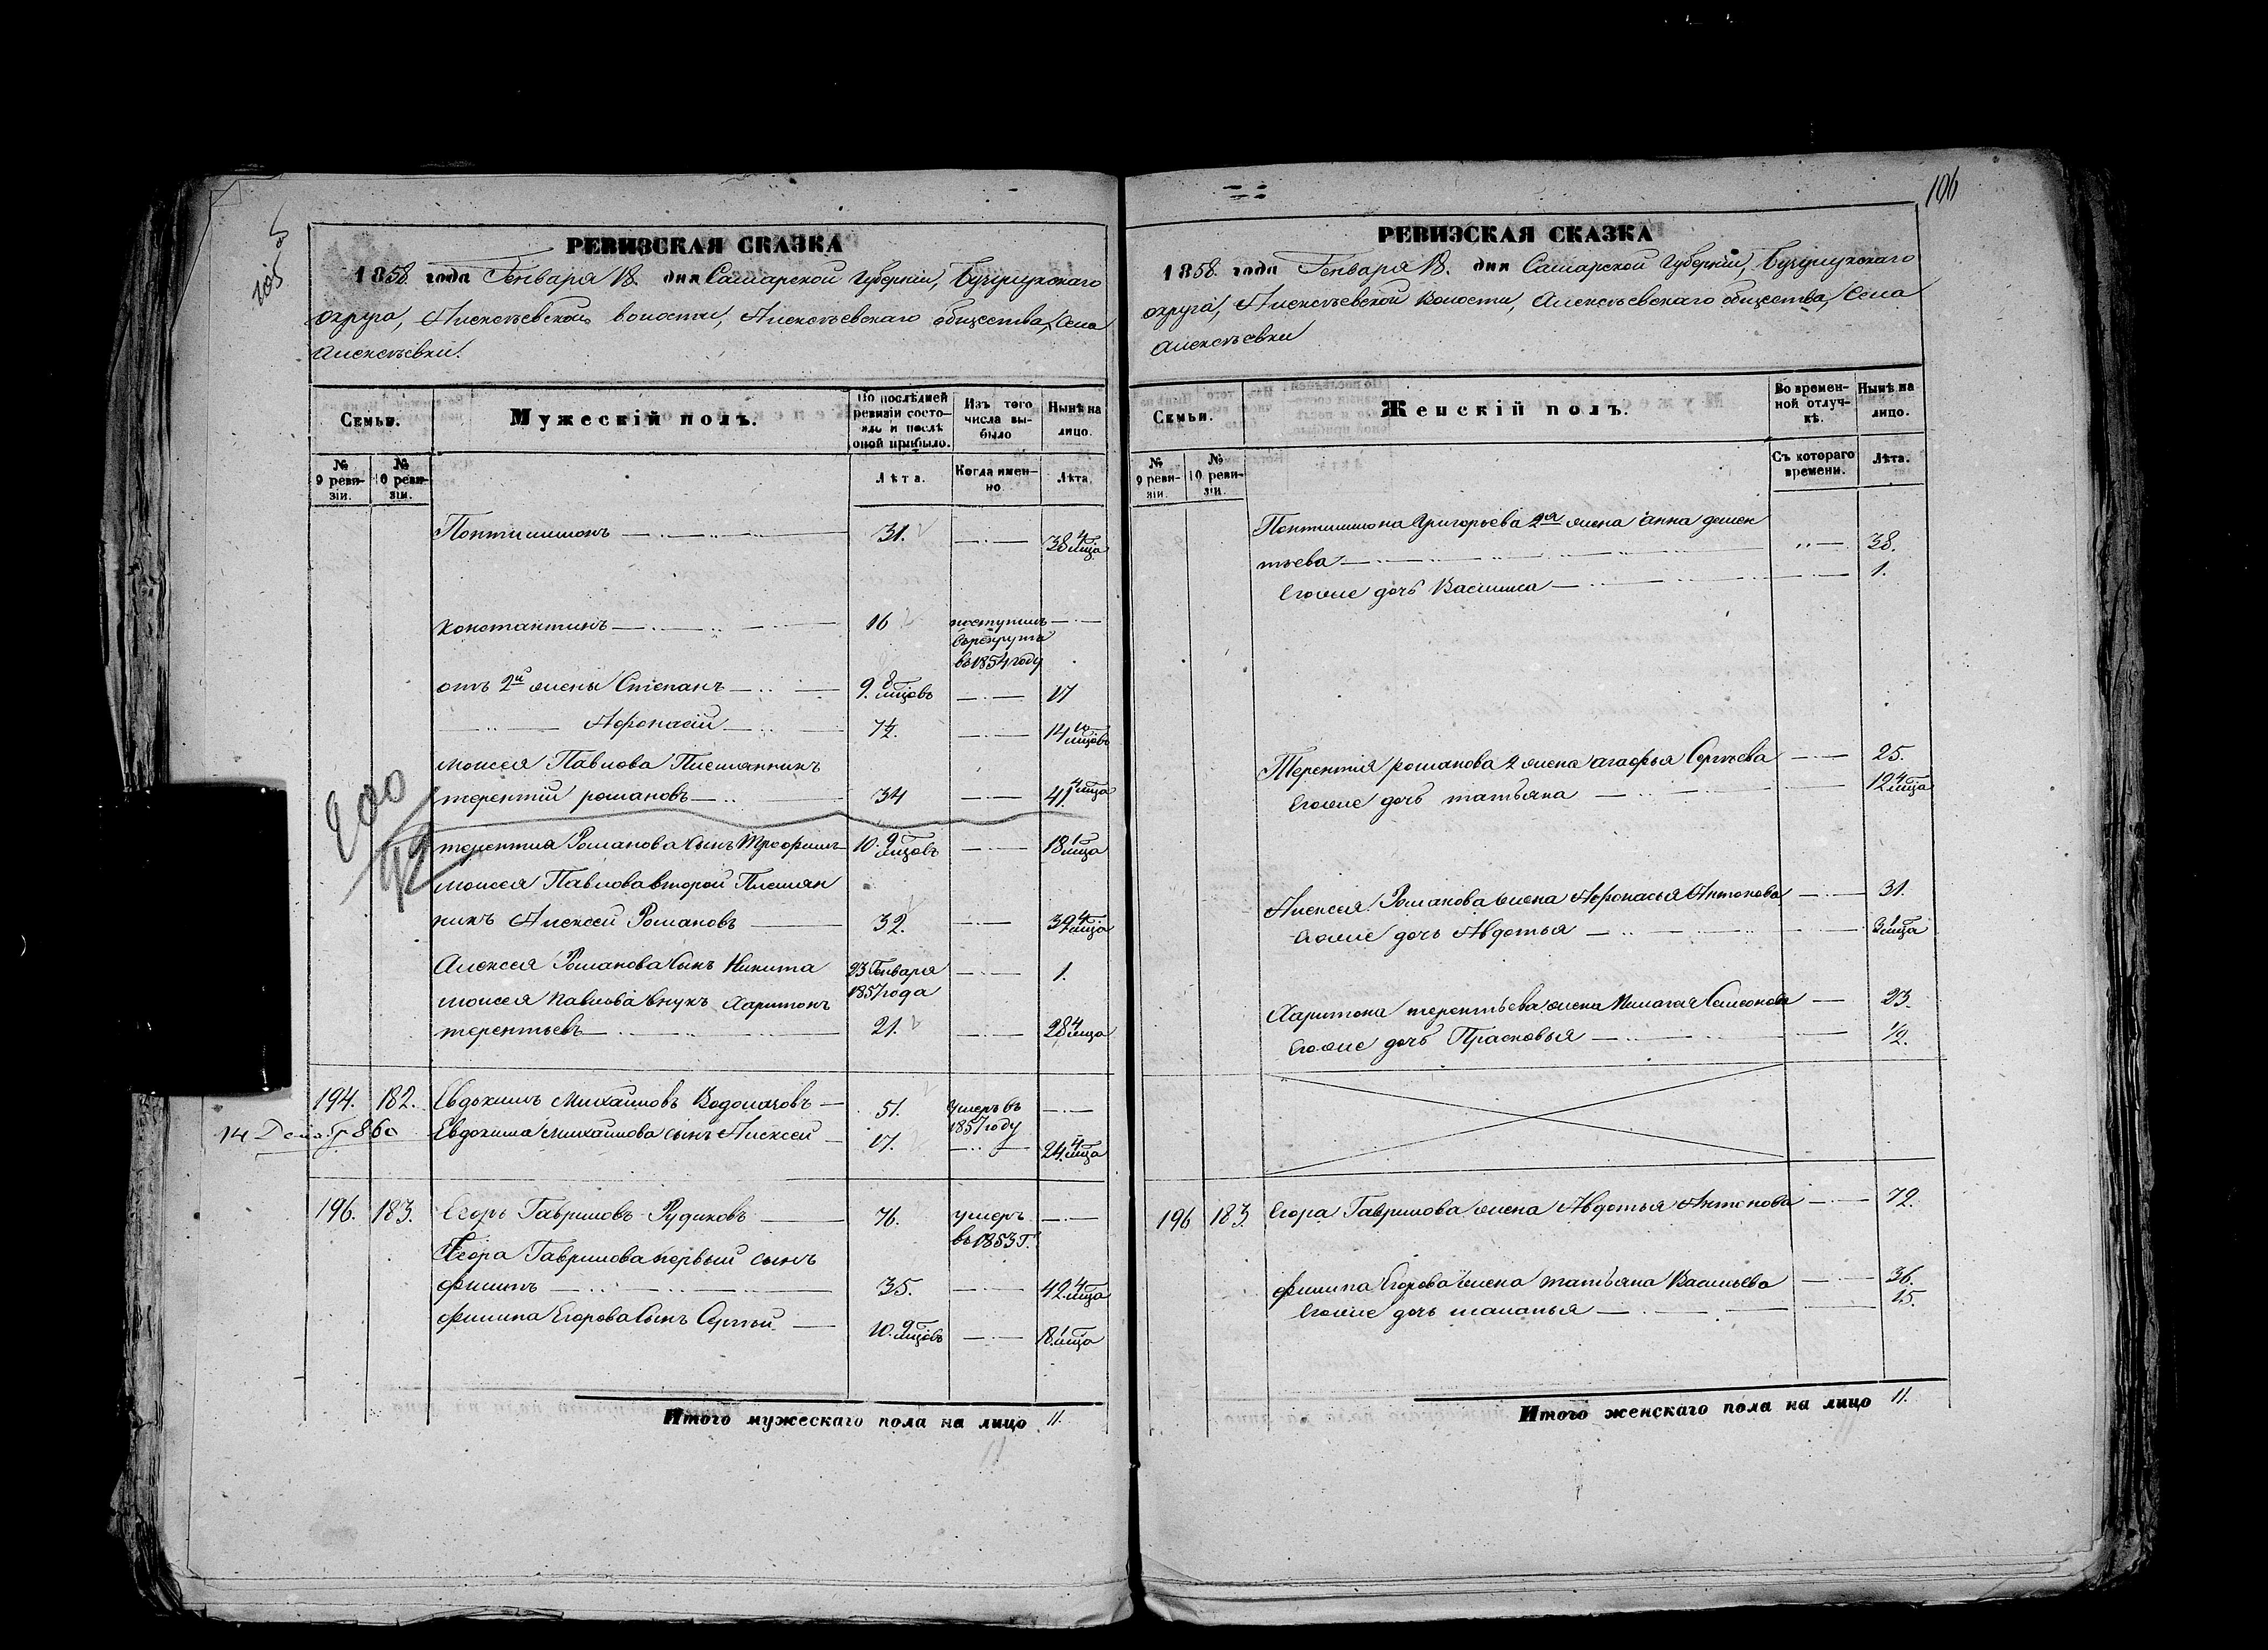 105
РЕВИЗСКАЯ СКАЗКА
1858 года Генваря 18. дня Самарской Губерніи, Бузулукскаго
округа, Алексѣевской волости, Алексѣевскаго общества, Села
Алексѣевки.
Семьи.
Мужескій полъ.
По послѣдней
ревизіи состо-
яло и послѣ
оной прибыло.
Изъ того
числа вы-
было
Нынѣ на
лицо.
№
9 реви-
зіи.
№
10 реви-
зіи.
Лѣта.
Когда имен-
но
Лѣта.
31.
38 4 мца
Константинъ 16 поступилъ
въ рекруты
въ 1854 году
отъ 2й жены Степанъ 9. 8 мцовъ 17
Афонасій 7½. 14 10 мцовъ
Моисея Павлова Племянникъ
терентій романовъ 34 41 4 мца
200
42
терентия Романова сынъ Трофимъ 10. 9 мцовъ 18 1 мца
Моисея Павлова второй Племян
никъ Алексей Романовъ 32. 39 4 мца
Алексея Романова сынъ Никита 23 Генваря
1857 года 1.
Моисея Павлова внукъ Харитонъ
терентьевъ 21. 28 4 мца
194. 182. Евдокимъ Михайловъ 51. умеръ въ
1857 году
14 860 Евдокима Михайлова сынъ Алексей 17. 24. 4 мца
196. 183. Егоръ Гавриловъ Рудиковъ 76. умеръ
въ 1853 г.
Егора Гаврилова первый сынъ
филипъ 35. 42. 4 мца
филипа Егорова Сынъ Сергѣй 10. 9 мцовъ 18. 1 мца
Итого мужескаго пола на лицо 11.
11
106
РЕВИЗСКАЯ СКАЗКА
1858. года Генваря 18. дня Самарской Губерніи, Бузулукскаго
округа, Алексѣевской Волости, Алексѣевскаго общества, Села
Алексѣевки
Семьи.
Женскій полъ.
Во времен-
ной отлуч-
кѣ.
Нынѣ на
лицо.
№
9 реви-
зіи.
№
10 реви-
зіи.
Съ котораго
времени.
Лѣта.
Григорьева 2я жена анна демен
тьева 38.
Егоже дочь Василиса 1.
Терентия романова 2 жена агафья Сергѣева 25.
Егоже дочь татьяна 12 4 мца
Алексея Романова жена Афонасья Антонова 31.
Егоже дочь Авдотья 3 1 мца
Харитона терентьева жена Пилагая Самсонова 23.
Егоже дочь Прасковья ½.
196 183. Егора Гаврилова жена Авдотья Антонова 72.
филипа Егорова жена татьяна Васильева 36.
Егоже дочь маланья 15.
Итого женскаго пола на лицо 11.